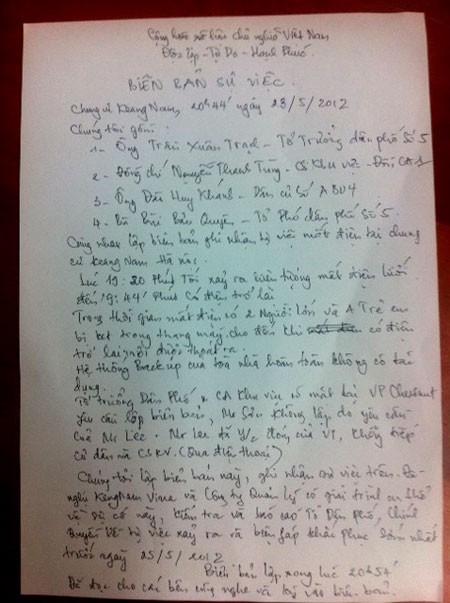 Cộng hoà xã hội chủ nghĩa Việt Nam
Độc lập - Tự Do - Hạnh Phúc
BIÊN BẢN SỰ VIỆC
Chung cư Keangnam, 20h44' ngày 23/5/2012
Chúng tôi gồm:
1- Ông Trần Xuân - Tổ Trưởng dân phố Số 5
2- Đồng chí Nguyễn Thanh Tùng - CS Khu vực - CA
3- Ông Huy Khánh - Dân cư số A
4- Bà Bùi Quyên - Tổ Phó dân phố Số 5
Cùng nhau lập biên bản ghi nhận sự việc mất điện tại chung
cư Keangnam Hà Nội:
Lúc 19:20 phút Tối xảy ra hiện tượng mất điện lưới
đến 19:44 Phút Có điện trở lại
Trong thời gian mất điện có 2 Người lớn và Trẻ em
bị kẹt trong thang máy cho đến khi có điện
trở lại mới được thoát ra.
Hệ thống Backup của toà nhà hoàn toàn không có tác
dụng.
Tổ trưởng Dân Phố & CA Khu vực có mặt tại VP
yêu cầu lập biên bản, Mr không lập do yêu cầu
của Mr Lee. Mr Lee đã y/c đóng cửa VP, không tiếp
cư dân và CSKV. (Qua điện thoại)
Chúng tôi lập biên bản này, ghi nhận sự việc trên. Đề
nghị Vina và Công ty Quản lý có giải trình cụ thể
về sự cố này, kiểm tra và báo cáo Tổ Dân phố, Chính
Quyền về sự việc xảy ra và biện pháp khắc phục sớm nhất
trước ngày 25/5/2012
Biên bản lập xong lúc 20h54'
Đã đọc cho các bên cùng nghe và ký vào biên bản.